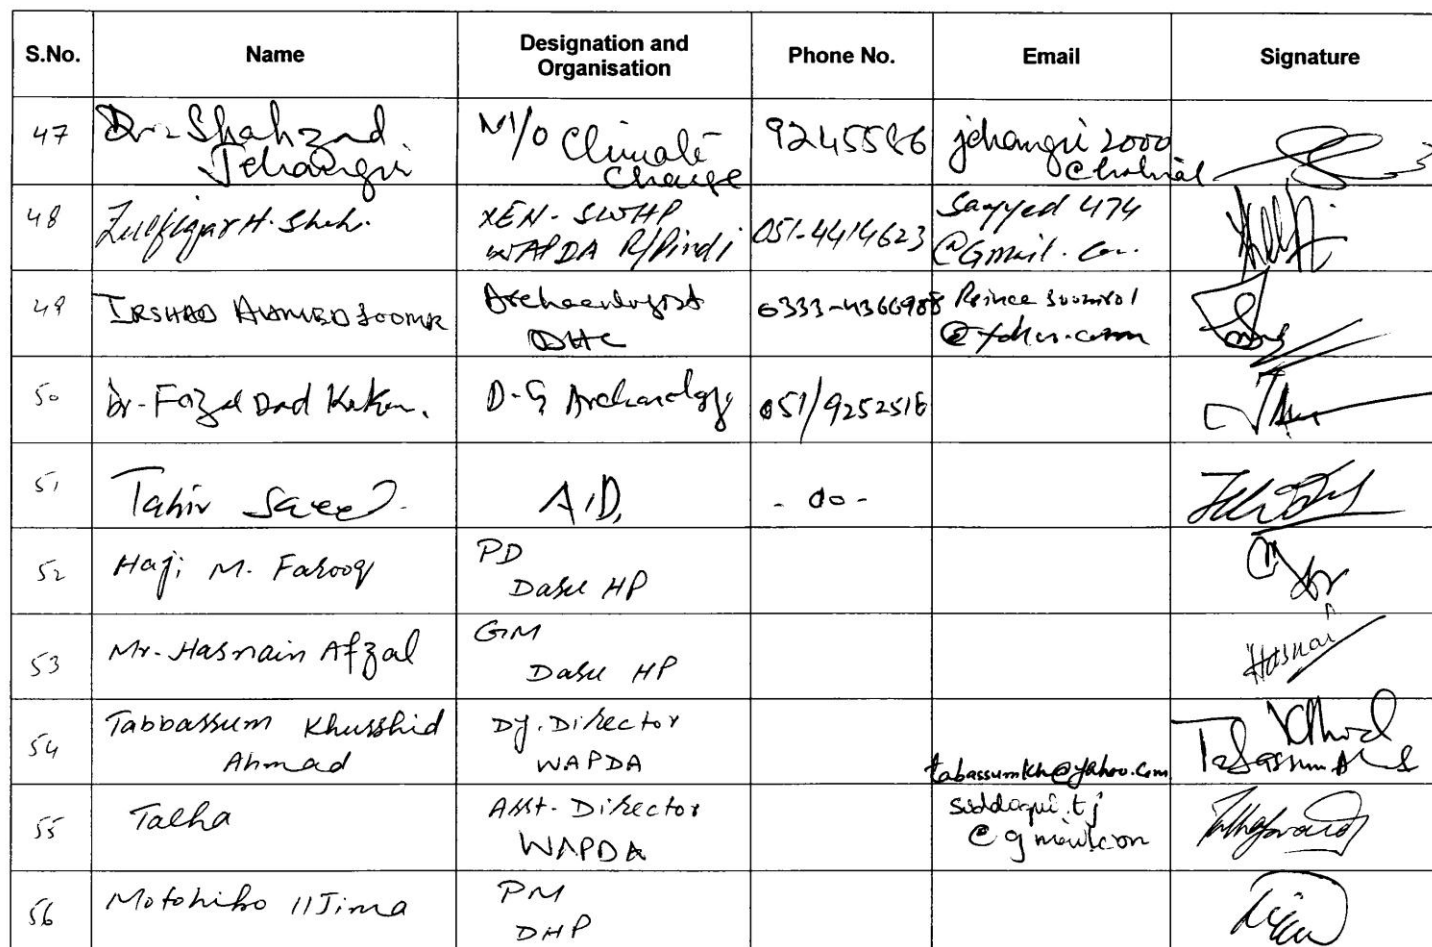 S.No. Name Designation and Organisation Phone No. Email Signature
47 Dr. Shahzad Jehangir M/o Climate Change 9245586 jehangir2000 @hotmail
48 Zulfiqar H. Shah. XEN-SWHP WAPDA R/Pindi 051-4414623 Sayyed 474 @Gmail.
49 IRSHAD AHMED SOOMR Archaeologist 0333-4366988 Prince soomro1
50 Dr. Fazal Dad Kakar. D.G Archaeology 051/9252516
51 Tahir Saeed. A.D, - do -
52 Haji M. Farooq PD Dasu HP
53 Mr. Hasnain Afzal GM Dasu HP Hasnai
54 Tabbassum Khurshid Ahmad Dy. Director WAPDA tabassumkh@yahoo.com
55 Talha Asst. Director WAPDA siddiqui.tj
56 Motohiko IIJima PM DHP